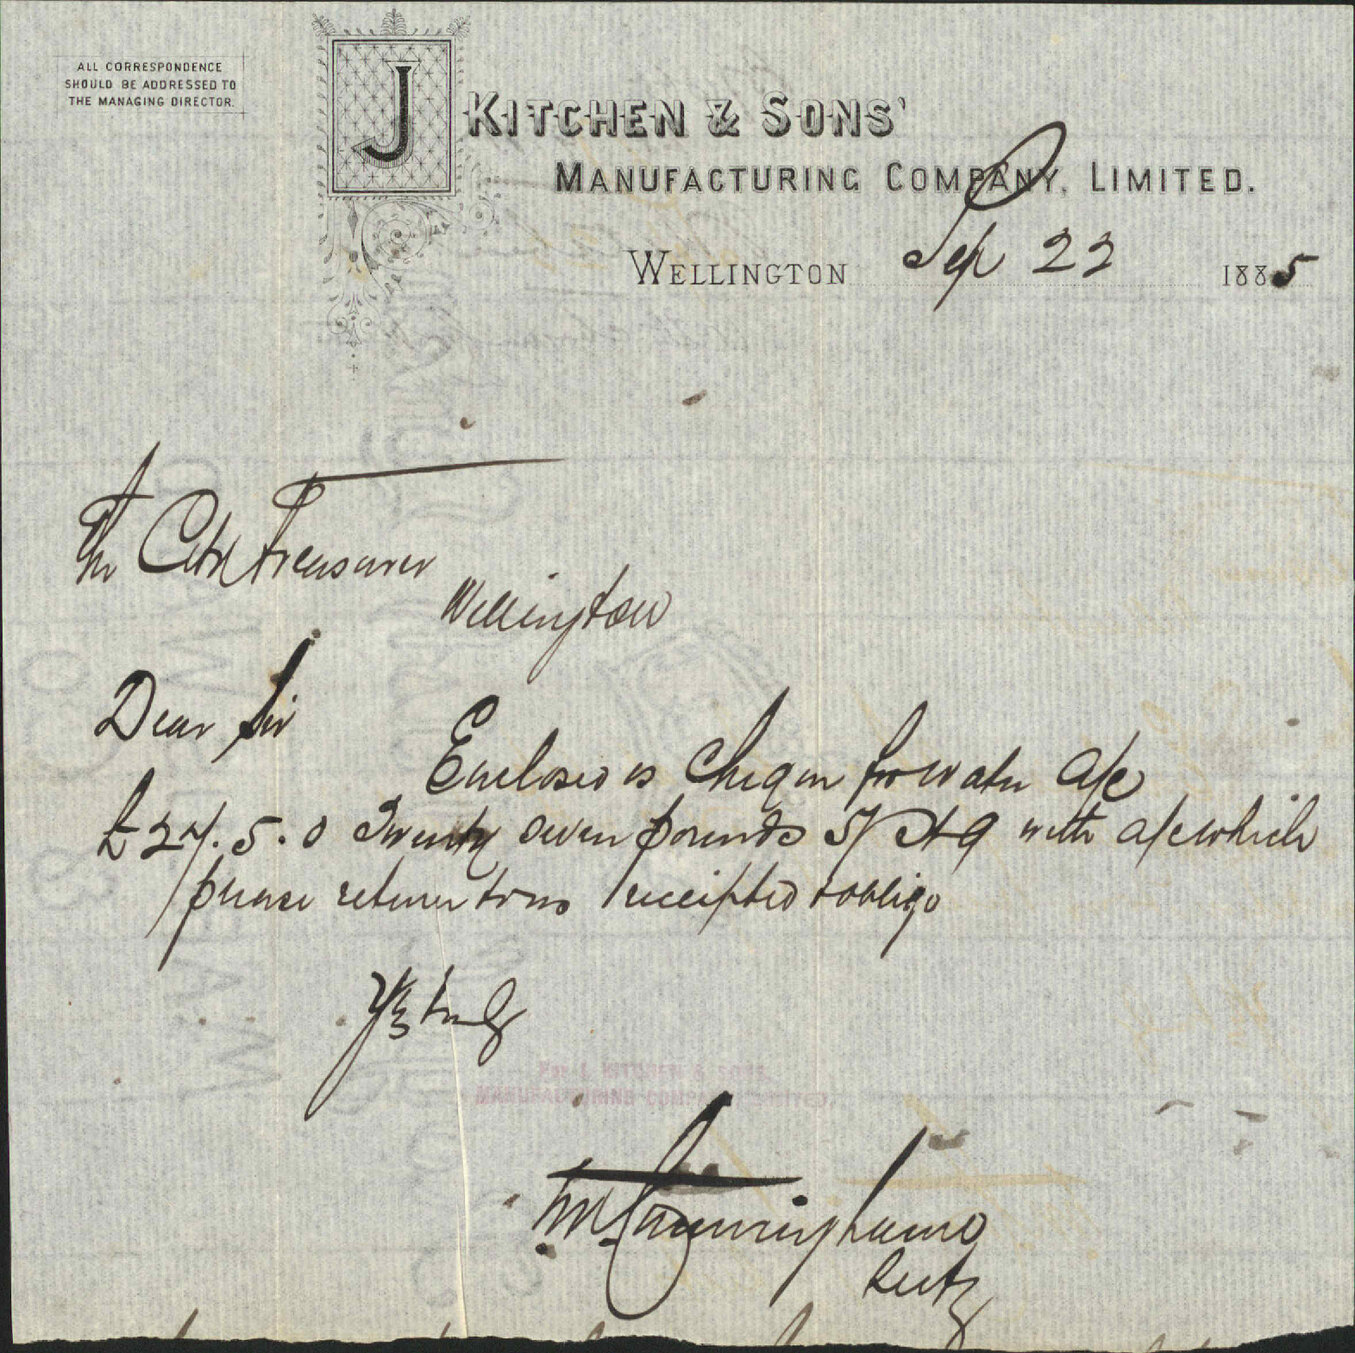 ALL CORRESPONDENCE
SHOULD BE ADDRESSED TO
THE MANAGING DIRECTOR.
J KITCHEN & SONS'
MANUFACTURING COMPANY, LIMITED.
WELLINGTON Sep 22 1885
The City Treasurer
Wellington
Dear Sir
Enclosed is Cheque for water a/c
£27.5.0 Twenty seven pounds 5/ Stg with a/c which
please return to us receipted & oblige
Yrs truly
Per J. KITCHEN & SONS
MANUFACTURING COMPANY LIMITED.
Cunningham